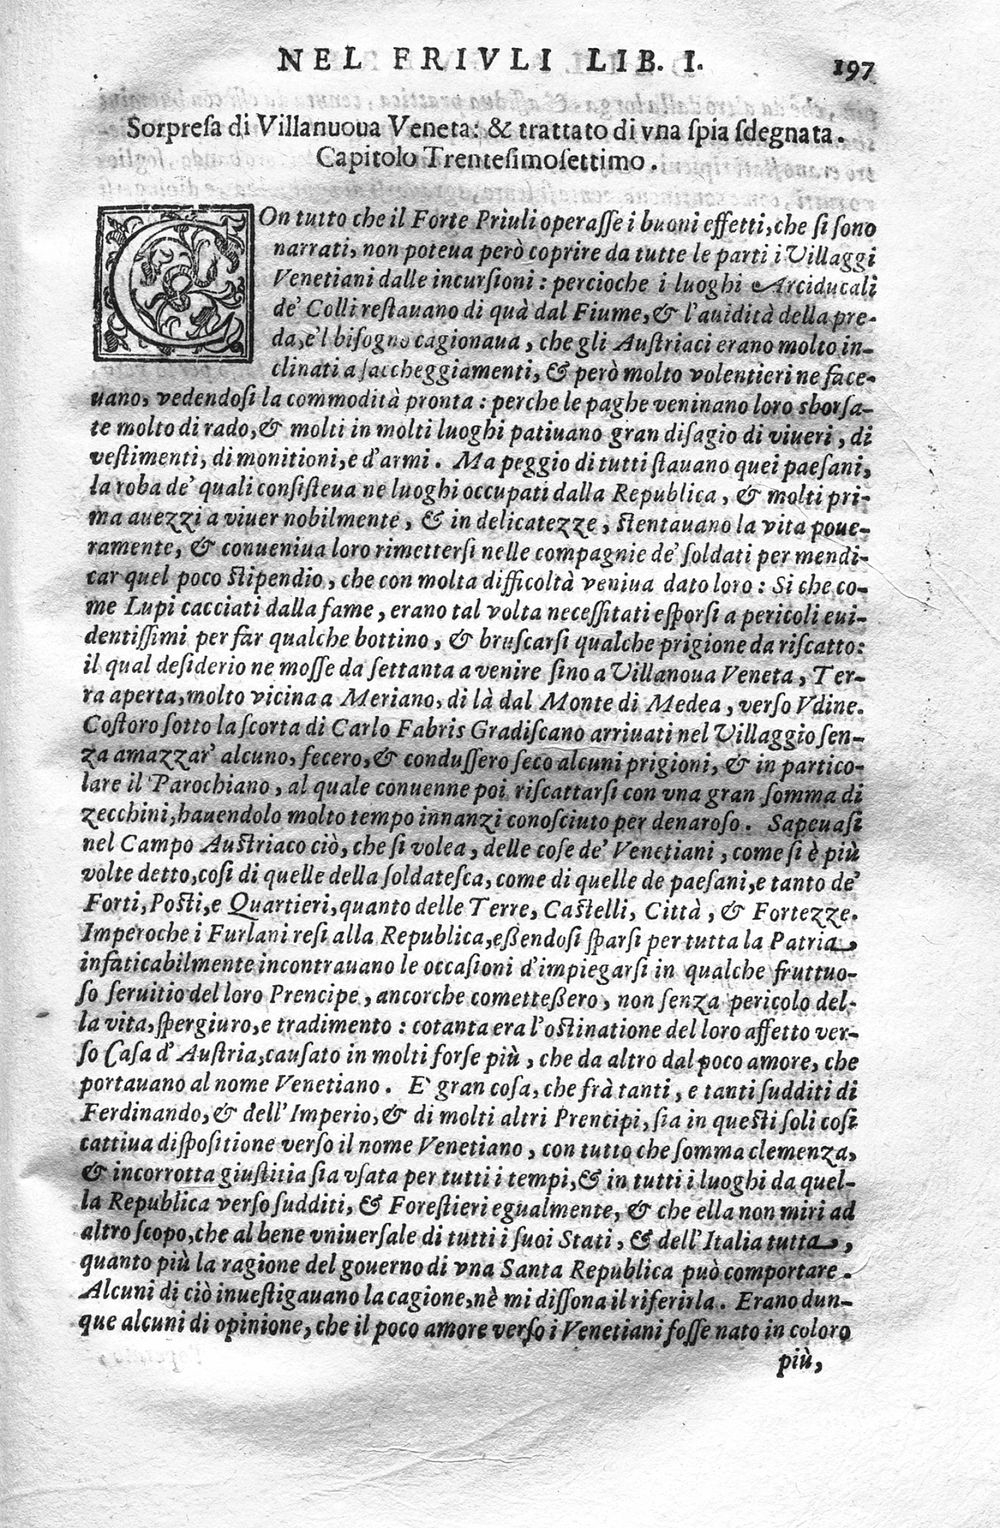 NEL FRIVLI LIB. I. 197
Sorpresa di Villanuoua Veneta: & trattato di vna spia sdegnata.
Capitolo Trentesimosettimo.
COn tutto che il Forte Priuli operasse i buoni effetti, che si sono
narrati, non poteua però coprire da tutte le parti i Villaggi
Venetiani dalle incursioni: percioche i luoghi Arciducali
de' Colli restauano di quà dal Fiume, & l'auidità della pre-
da, e'l bisogno cagionaua, che gli Austriaci erano molto in-
clinati a saccheggiamenti, & però molto volentieri ne face-
uano, vedendosi la commodità pronta: perche le paghe veniuano loro sborsa-
te molto di rado, & molti in molti luoghi patiuano gran disagio di viueri, di
vestimenti, di monitioni, e d'armi. Ma peggio di tutti stauano quei paesani,
la roba de' quali consisteua ne luoghi occupati dalla Republica, & molti pri-
ma auezzi a viuer nobilmente, & in delicatezze, stentauano la vita poue-
ramente, & conueniua loro rimettersi nelle compagnie de' soldati per mendi-
car quel poco stipendio, che con molta difficoltà veniua dato loro: Si che co-
me Lupi cacciati dalla fame, erano tal volta necessitati esporsi a pericoli eui-
dentissimi per far qualche bottino, & bruscarsi qualche prigione da riscatto:
il qual desiderio ne mosse da settanta a venire sino a Villanoua Veneta, Ter-
ra aperta, molto vicina a Meriano, di là dal Monte di Medea, verso Vdine.
Costoro sotto la scorta di Carlo Fabris Gradiscano arriuati nel Villaggio sen-
za amazzar' alcuno, fecero, & condussero seco alcuni prigioni, & in partico-
lare il Parochiano, al quale conuenne poi riscattarsi con vna gran somma di
zecchini, hauendolo molto tempo innanzi conosciuto per denaroso. Sapeuasi
nel Campo Austriaco ciò, che si volea, delle cose de' Venetiani, come si è più
volte detto, cosi di quelle della soldatesca, come di quelle de paesani, e tanto de'
Forti, Posti, e Quartieri, quanto delle Terre, Castelli, Città, & Fortezze.
Imperoche i Furlani resi alla Republica, essendosi sparsi per tutta la Patria,
infaticabilmente incontrauano le occasioni d'impiegarsi in qualche fruttuo-
so seruitio del loro Prencipe, ancorche comettessero, non senza pericolo del-
la vita, spergiuro, e tradimento: cotanta era l'ostinatione del loro affetto ver-
so Casa d'Austria, causato in molti forse più, che da altro dal poco amore, che
portauano al nome Venetiano. E' gran cosa, che frà tanti, e tanti sudditi di
Ferdinando, & dell'Imperio, & di molti altri Prencipi, sia in questi soli cosi
cattiua dispositione verso il nome Venetiano, con tutto che somma clemenza,
& incorrotta giustitia sia vsata per tutti i tempi, & in tutti i luoghi da quel-
la Republica verso sudditi, & Forestieri egualmente, & che ella non miri ad
altro scopo, che al bene vniuersale di tutti i suoi Stati, & dell'Italia tutta,
quanto più la ragione del gouerno di vna Santa Republica può comportare.
Alcuni di ciò inuestigauano la cagione, nè mi dissona il riferirla. Erano dun-
que alcuni di opinione, che il poco amore verso i Venetiani fosse nato in coloro
più,